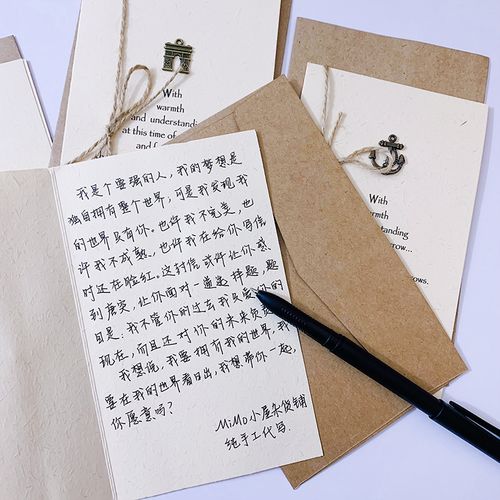 With
warmth
and understanding
at this time of
With
rmth
rstanding
rrow...
rows.
我是个要强的人，我的梦想是
独自拥有整个世界，可是我发现我
的世界只有你，也许我不完美，也
许我不成熟、也许我在给你写信
时还在脸红，这封信或许让你感
到唐突，让你面对一道选择题，题
目是：我不管你的过去我只要你的
现在，而且还对你的未来负责
我想说，我要拥有我的世界，我
要在我的世界看日出，我想带你一起，
你愿意吗？
MiMo小屋杂货铺
纯手工代写.